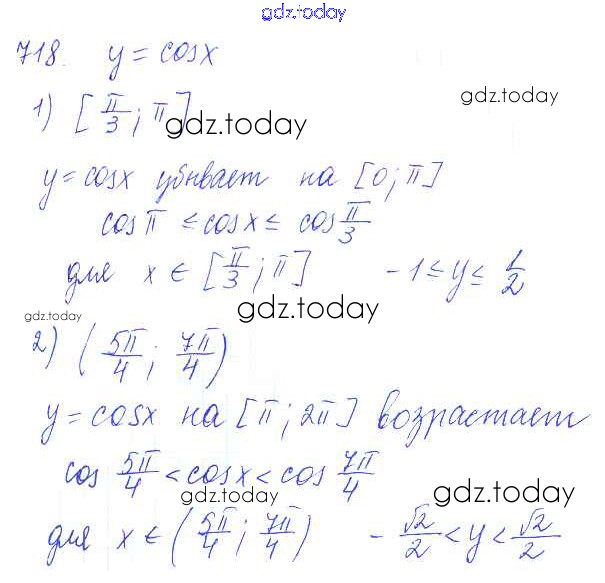 gdz.today
718. y = cosx
1) [π/3; π]
gdz.today
gdz.today
y = cosx убывает на [0; π]
cos π ≤ cosx ≤ cos π/3
для x ∈ [π/3; π] -1 ≤ y ≤ 1/2
gdz.today
gdz.today
2) (5π/4; 7π/4)
gdz.today
y = cosx на [π; 2π] возрастает
cos 5π/4 < cosx < cos 7π/4
gdz.today
gdz.today
для x ∈ (5π/4; 7π/4) -√2/2 < y < √2/2